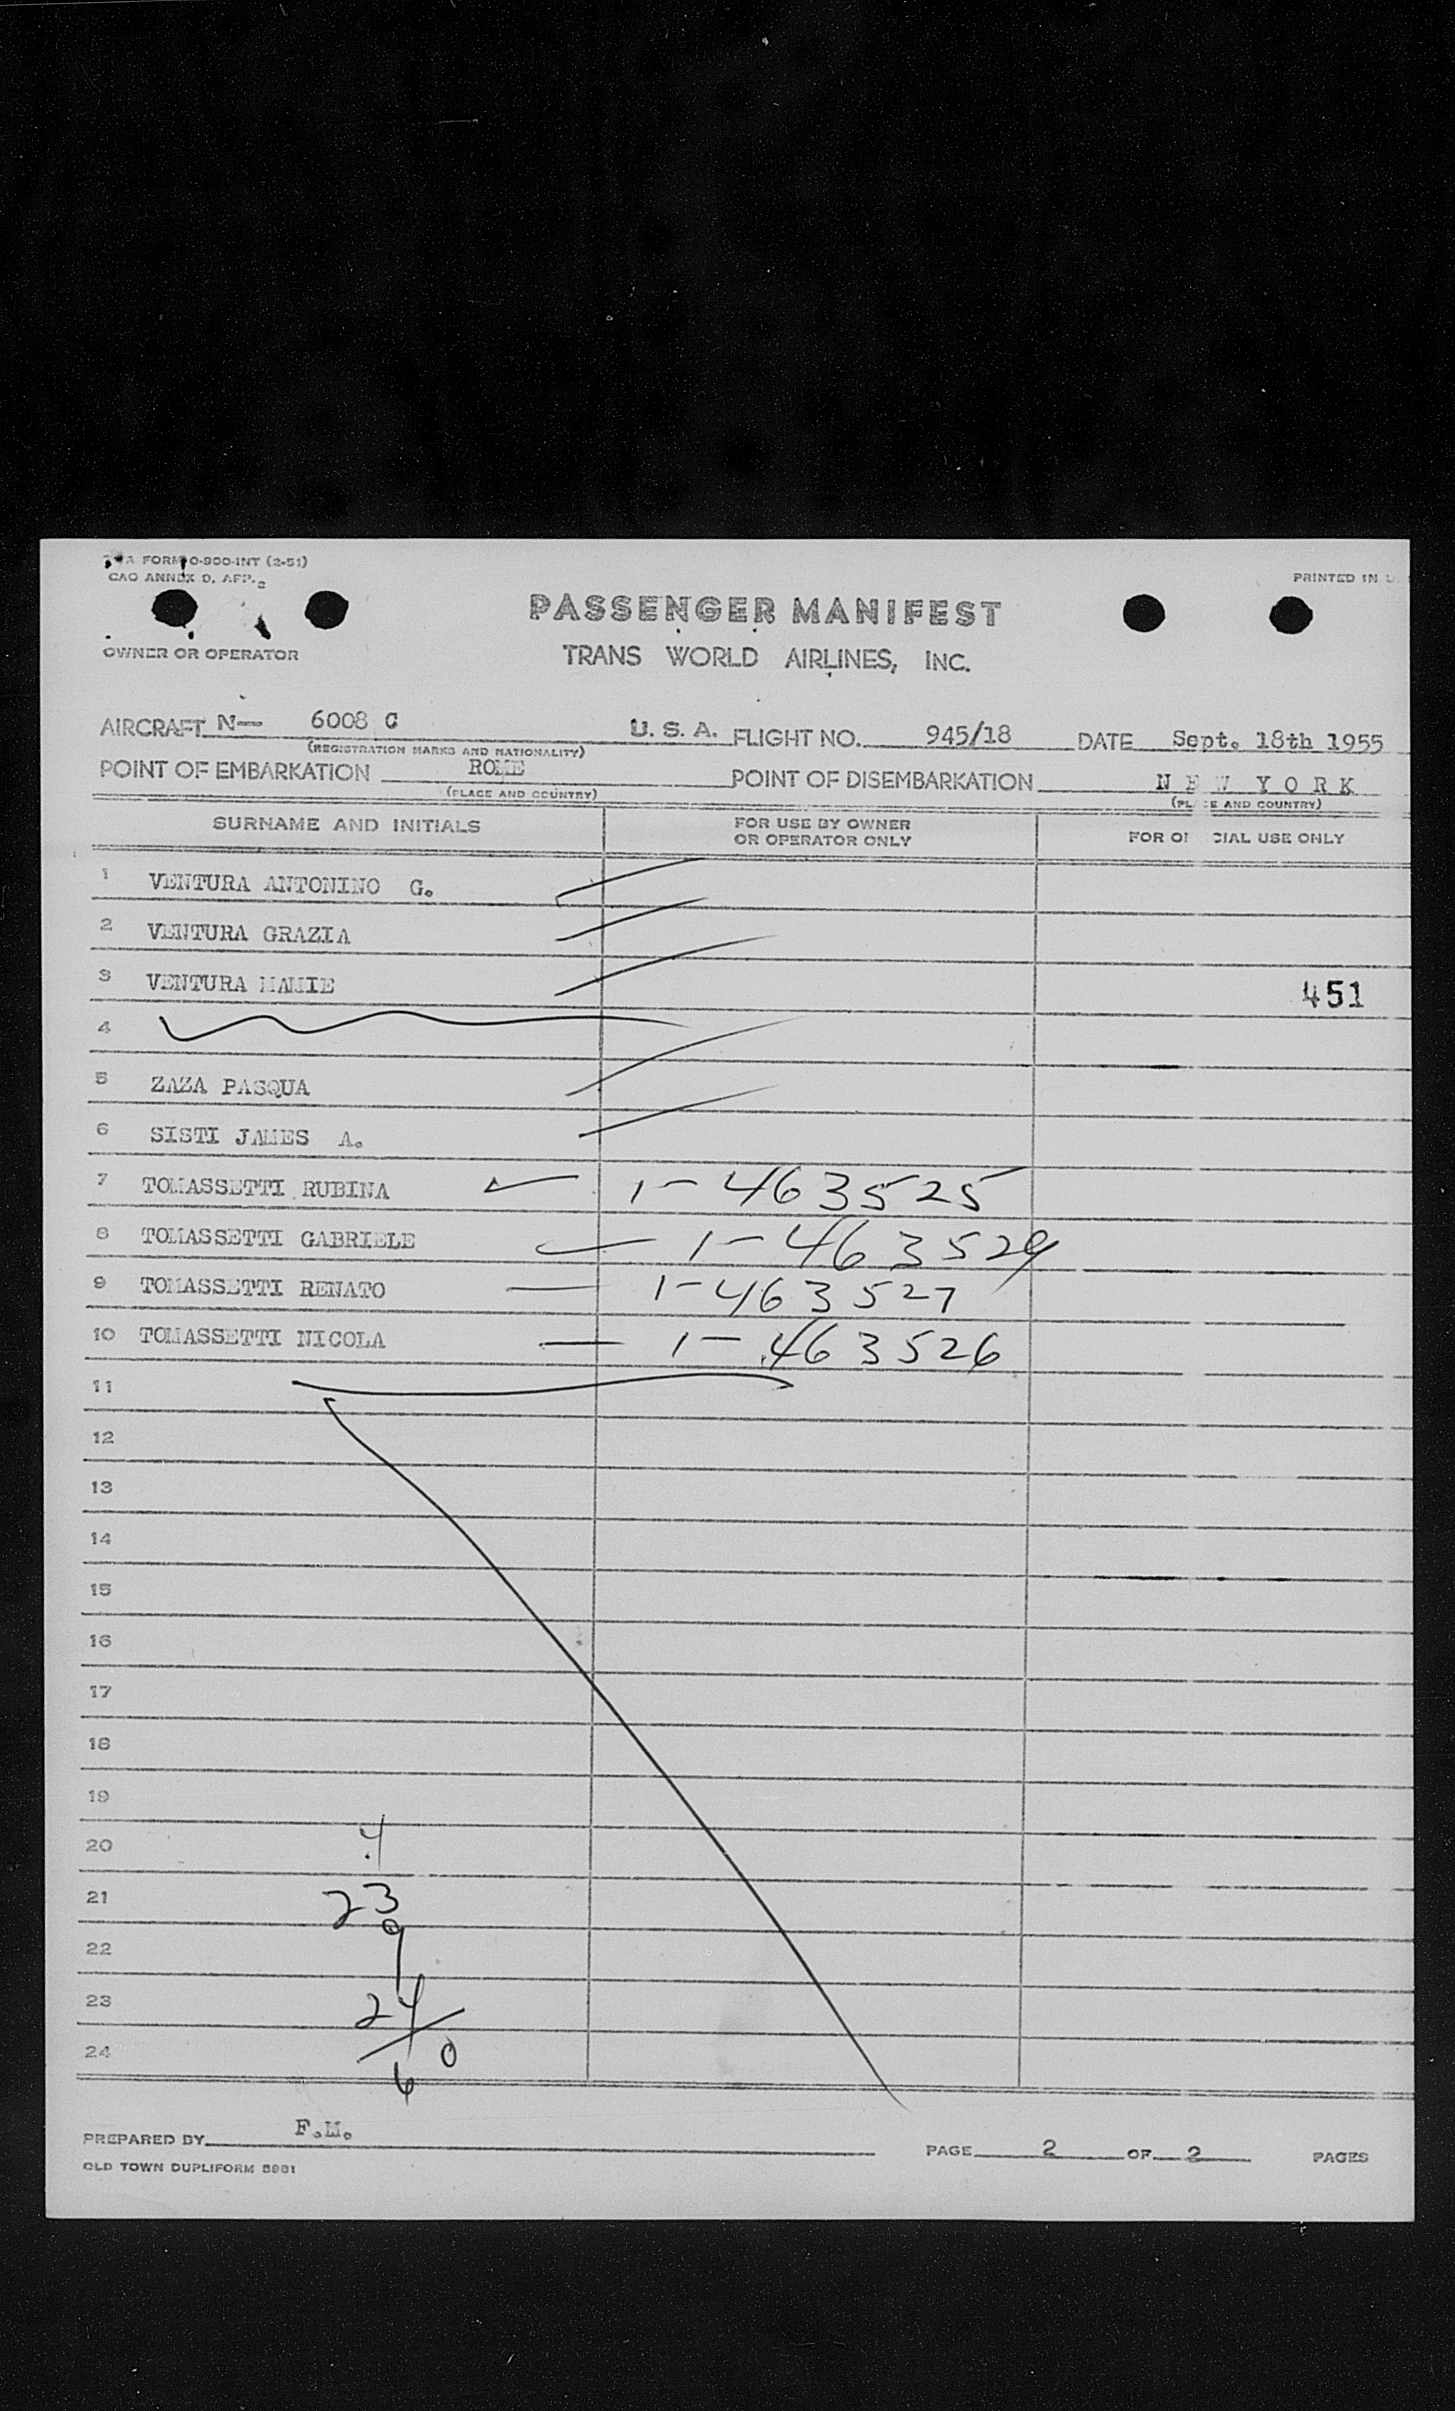 FORM 0-900-INT (2-51)
CAO ANNEX D, APP. 2
PRINTED IN U.
PASSENGER MANIFEST
OWNER OR OPERATOR
TRANS WORLD AIRLINES, INC.
AIRCRAFT N— 6008 C U. S. A. FLIGHT NO. 945/18 DATE Sept. 18th 1955
(REGISTRATION MARKS AND NATIONALITY)
POINT OF EMBARKATION ROME POINT OF DISEMBARKATION N E W Y O R K
(PLACE AND COUNTRY) (PLACE AND COUNTRY)
SURNAME AND INITIALS FOR USE BY OWNER OR OPERATOR ONLY FOR OFFICIAL USE ONLY
1 VENTURA ANTONINO G.
2 VENTURA GRAZIA
3 VENTURA MAMIE 451
4
5 ZAZA PASQUA
6 SISTI JAMES A.
7 TOMASSETTI RUBINA 1-463525
8 TOMASSETTI GABRIELE 1-463529
9 TOMASSETTI RENATO 1-463527
10 TOMASSETTI NICOLA 1-463526
11
12
13
14
15
16
17
18
19
20 4
21 23
22 9
23 24
24 0
6
PREPARED BY F.M. PAGE 2 OF 2 PAGES
OLD TOWN DUPLIFORM 5981